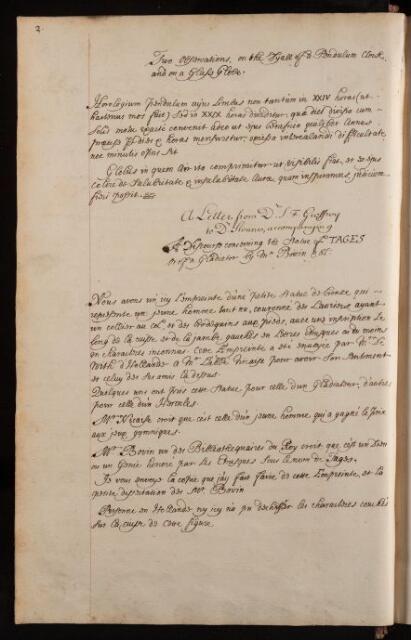 2.
Two Observations, on the Dyall of a Pendulum Clock,
and on a Glass Globe.
Horologium Pendulum cujus Limbus non tantum in XXIV horas (ut
hactenus mos fuit) sed in XXIX horas dividitur, quæ diei divisio cum
Solis motu exacte convenit adeo ut ejus beneficio qualibet Annos
horas mensuretur, difficultate
nec minutis opus sit
Globus in quem Aer ita comprimitur ut visibilis fiat, et ex ejus
colore de Salubritate & insalubritate Auræ quam inspiramus judicium
fieri possit.
A Letter from Dr. St. F. Geoffroy
to Dr. Sloane, accompanying
A Discourse concerning the Statue of TAGES
or of a Gladiator by Mr. Bovin &c.
Nous avons vu icy l'empreinte d'une petite Statue de bronze qui
represente un jeune homme tout nu, couronné de Lauriers ayant
un collier au Col, et des Brodequins aux pieds, avec une inscription le
long de la cuisse et de la jambe gauche en Lettres Etrusques ou du moins
en charactères inconnus. Cette Empreinte a été envoyée par Mr.
With d'Hollande a Mr. l'abbé Nicaise pour avoir son Sentiment
et celuy des ses amis la dessus.
Quelques uns ont pris cette Statue pour celle d'un Gladiateur, d'autres
pour celle d'un Hercules.
Mr. Nicaise croit que c'est celle d'un jeune homme qui a gagné le prix
aux jeux gymniques.
Mr. Bovin un des Bibliothequaires du Roy croit que c'est un Dieu
ou un Genie honoré par les Etrusques sous le nom de Tages.
Je vous envoye la copie que j'ay fait faire de cette Empreinte, et la
petite dissertation de Mr. Bovin
Personne en Hollande ny icy n'a pu dechiffrer les charactères couchés
sur la cuisse de cette figure